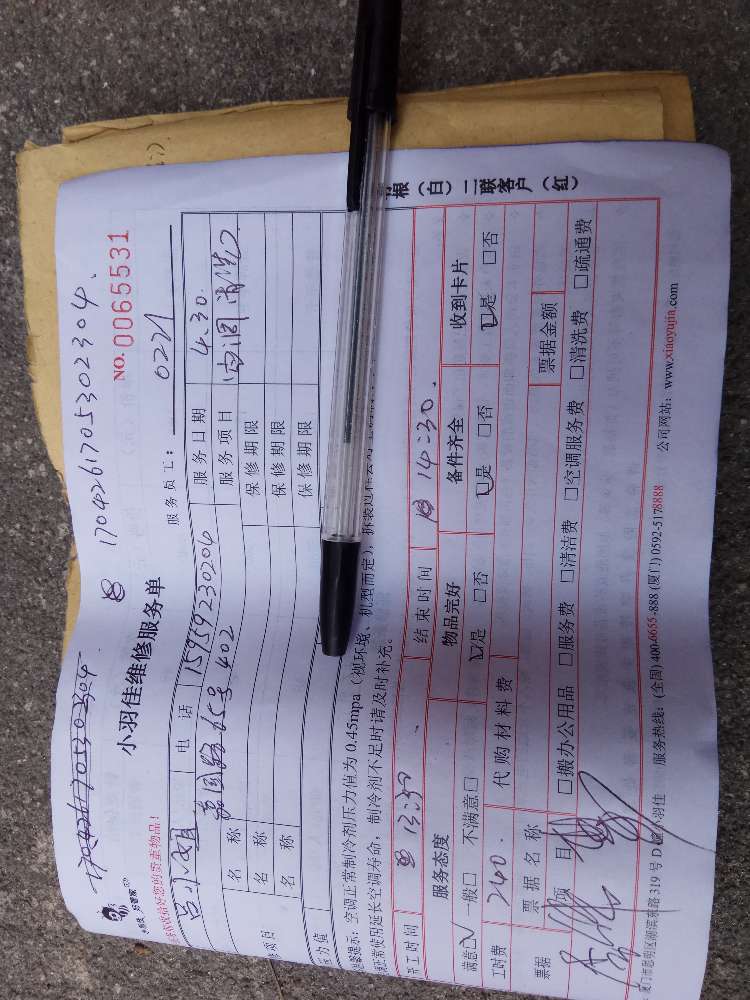 170426170530 2304.
170426170 5302304.
小羽佳维修服务单
NO. 0065531
服务员工: 0221
电 话 15959230204 服务日期 4.30.
嘉园路65号402 服务项目 空调清洗
名 称 保修期限
名 称 保修期限
名 称 保修期限
温馨提示：空调正常制冷剂压力值为0.45mpa（视环境、机型而定），
延长空调寿命，制冷剂不足时请及时补充。
根（白）二联客户（红）
开工时间 13:30 结束时间 14:30.
服务态度 物品完好 备件齐全 收到卡片
满意☑ 一般□ 不满意□ ☑是 □否 ☑是 □否 ☑是 □否
工时费 240. 代购材料费
票据 票据名称 票据金额
项目 □搬办公用品 □服务费 □清洁费 □空调服务费 □清洗费 □疏通费
厦门市思明区湖滨东路319号D 服务热线：(全国) 400-6655-888 (厦门) 0592-5178888 公司网站：www.xiaoyujia.com